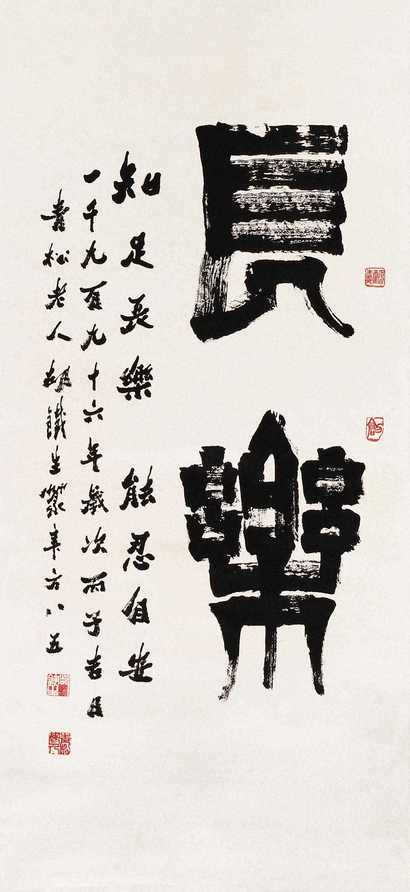 長樂
知足長樂 能忍自安
一千九百九十六年歲次丙子吉日
青松老人胡鐵生 年方八五